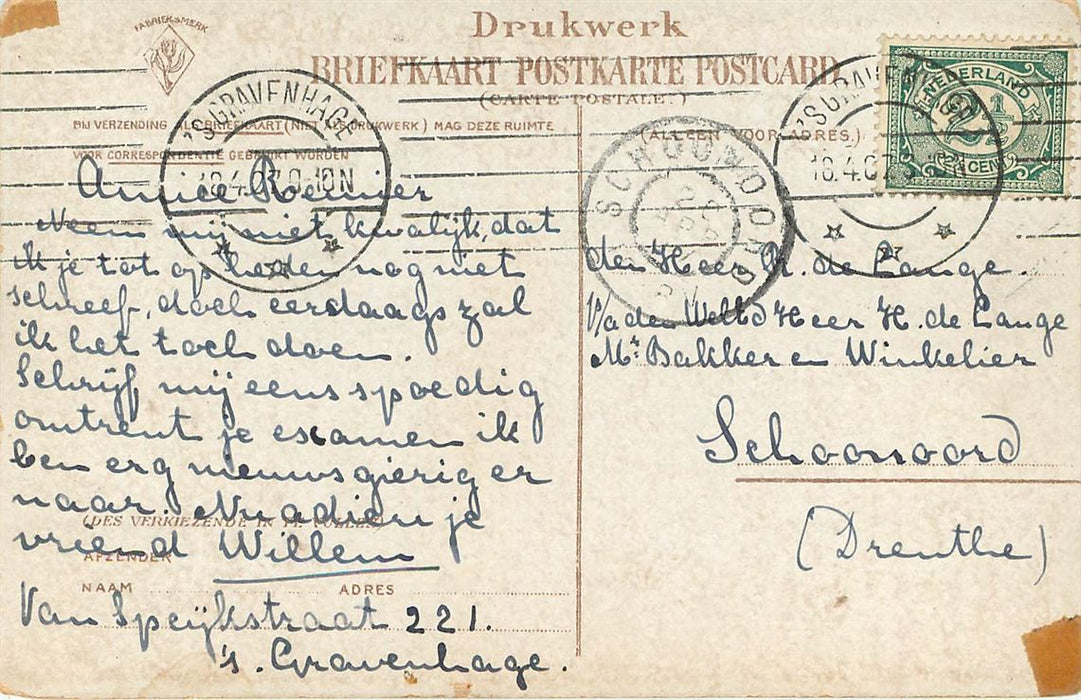 FABRIEKSMERK
Drukwerk
BRIEFKAART POSTKARTE POSTCARD
(CARTE POSTALE.)
BIJ VERZENDING ALS BRIEFKAART (NIET ALS DRUKWERK) MAG DEZE RUIMTE
VOOR CORRESPONDENTIE GEBRUIKT WORDEN
(ALLEEN VOOR ADRES.)
NEDERLAND
2½ CENT
'S GRAVENHAGE
18.4.07. 9-10N
'S GRAVENHAGE
18.4.07
SCHOONOORD
Amice Reinier
Neem mij niet kwalijk, dat
ik je tot op heden nog niet
schreef, doch eerstdaags zal
ik het toch doen.
Schrijf mij eens spoedig
omtrent je examen ik
ben erg nieuwsgierig er
naar. Nu adieu je
vriend Willem
(DES VERKIEZENDE IN TE VULLEN)
AFZENDER
NAAM ADRES
Van Speijkstraat 221.
's. Gravenhage.
den Heer R. de Lange.
p/a den Heer H. de Lange
Mr. Bakker en Winkelier
Schoonoord
(Drenthe)